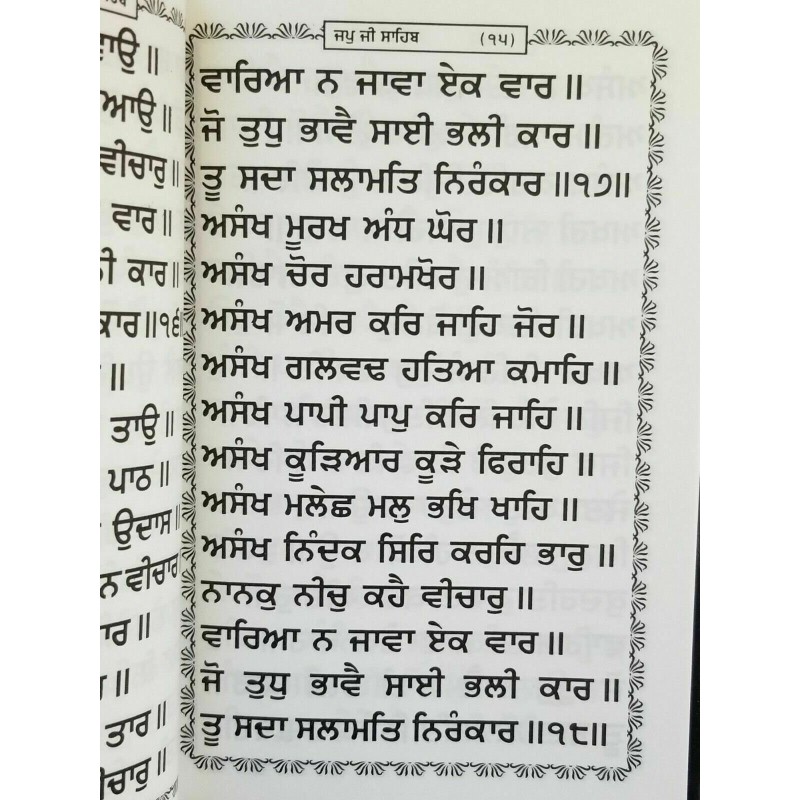 ਾਉ॥
ਆਉ॥
ਵੀਚਾਰੁ॥
ਵਾਰ॥
ਕਾਰ॥
ਕਾਰ॥੧੬
॥
ਤਾਉ॥
ਪਾਠ॥
ਉਦਾਸ॥
ਨ ਵੀਚਾਰ
ਾਰ॥
॥
ਤਾਰ॥
ਚਾਰੁ॥
ਜਪੁ ਜੀ ਸਾਹਿਬ (੧੫)
ਵਾਰਿਆ ਨ ਜਾਵਾ ਏਕ ਵਾਰ॥
ਜੋ ਤੁਧੁ ਭਾਵੈ ਸਾਈ ਭਲੀ ਕਾਰ॥
ਤੂ ਸਦਾ ਸਲਾਮਤਿ ਨਿਰੰਕਾਰ॥੧੭॥
ਅਸੰਖ ਮੂਰਖ ਅੰਧ ਘੋਰ॥
ਅਸੰਖ ਚੋਰ ਹਰਾਮਖੋਰ॥
ਅਸੰਖ ਅਮਰ ਕਰਿ ਜਾਹਿ ਜੋਰ॥
ਅਸੰਖ ਗਲਵਢ ਹਤਿਆ ਕਮਾਹਿ॥
ਅਸੰਖ ਪਾਪੀ ਪਾਪੁ ਕਰਿ ਜਾਹਿ॥
ਅਸੰਖ ਕੂੜਿਆਰ ਕੂੜੇ ਫਿਰਾਹਿ॥
ਅਸੰਖ ਮਲੇਛ ਮਲੁ ਭਖਿ ਖਾਹਿ॥
ਅਸੰਖ ਨਿੰਦਕ ਸਿਰਿ ਕਰਹਿ ਭਾਰੁ॥
ਨਾਨਕੁ ਨੀਚੁ ਕਹੈ ਵੀਚਾਰੁ॥
ਵਾਰਿਆ ਨ ਜਾਵਾ ਏਕ ਵਾਰ॥
ਜੋ ਤੁਧੁ ਭਾਵੈ ਸਾਈ ਭਲੀ ਕਾਰ॥
ਤੂ ਸਦਾ ਸਲਾਮਤਿ ਨਿਰੰਕਾਰ॥੧੮॥